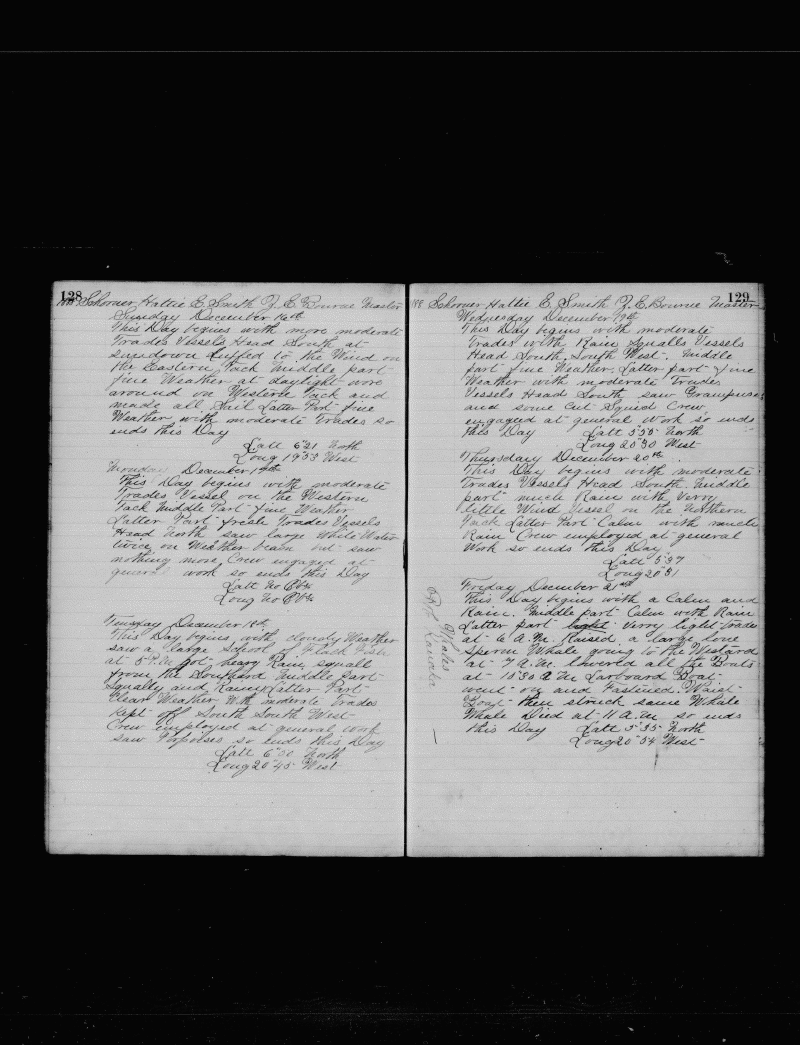 128
188 Schooner Hattie E Smith J. E. Bourne Master
Sunday December 16th
This Day begins with more moderate
Trades Vessels Head South at
sundown Luffed to the Wind on
the Eastern Tack Middle part
fine Weather at daylight wore
around on Western Tack and
made all Sail Latter Part fine
Weather with moderate Trades so
ends this Day
Latt 6°21 North
Long 19°33 West
Monday December 17th
This Day begins with moderate
Trades Vessel on the Western
Tack Middle Part fine Weather
Latter Part fresh Trades Vessels
Head North saw large White Water
twice on Weather beam but saw
nothing more Crew engaged at
general work so ends this Day
Latt no Obs
Long no Obs
Tuesday December 18th
This Day begins with cloudy Weather
saw a large School of Black Fish
at 5 P.M. got heavy Rain squall
from the Southard Middle part
Squally and Rainy Latter Part
Clear Weather With moderate Trades
Kept off South South West
Crew employed at general work
saw Porpoises so ends this Day
Latt 6°30 North
Long 20°45 West
129
188 Schooner Hattie E. Smith J. E. Bourne Master
Wednesday December 19th
This Day begins with moderate
Trades with Rain Squalls Vessels
Head South, South West. Middle
part fine Weather, Latter part fine
Weather with moderate Trades
Vessels Head South saw Grampuses
and some Cut Squid Crew
engaged at general Work so ends
this Day Latt 5°55 North
Long 20°30 West
Thursday December 20th
This Day begins with moderate
Trades Vessels Head South. Middle
part much Rain with Verry
little Wind Vessel on the Northern
Tack Latter Part Calm with much
Rain Crew employed at general
Work so ends this Day
Latt 5°37
Long 20°51
Friday December 21st
This Day begins with a Calm and
Rain. Middle part Calm with Rain
Latter part light Verry light Trades
at 6 A.M. Raised a large lone
Sperm Whale going to the Westard
at 7 A.M. lowered all the Boats
at 10°30 A M Larboard Boat
went on and Fastened. Waist
Boat then struck same Whale
Whale Died at 11 A.M. so ends
this Day Latt 5°35 North
Long 20°54 West
Whales